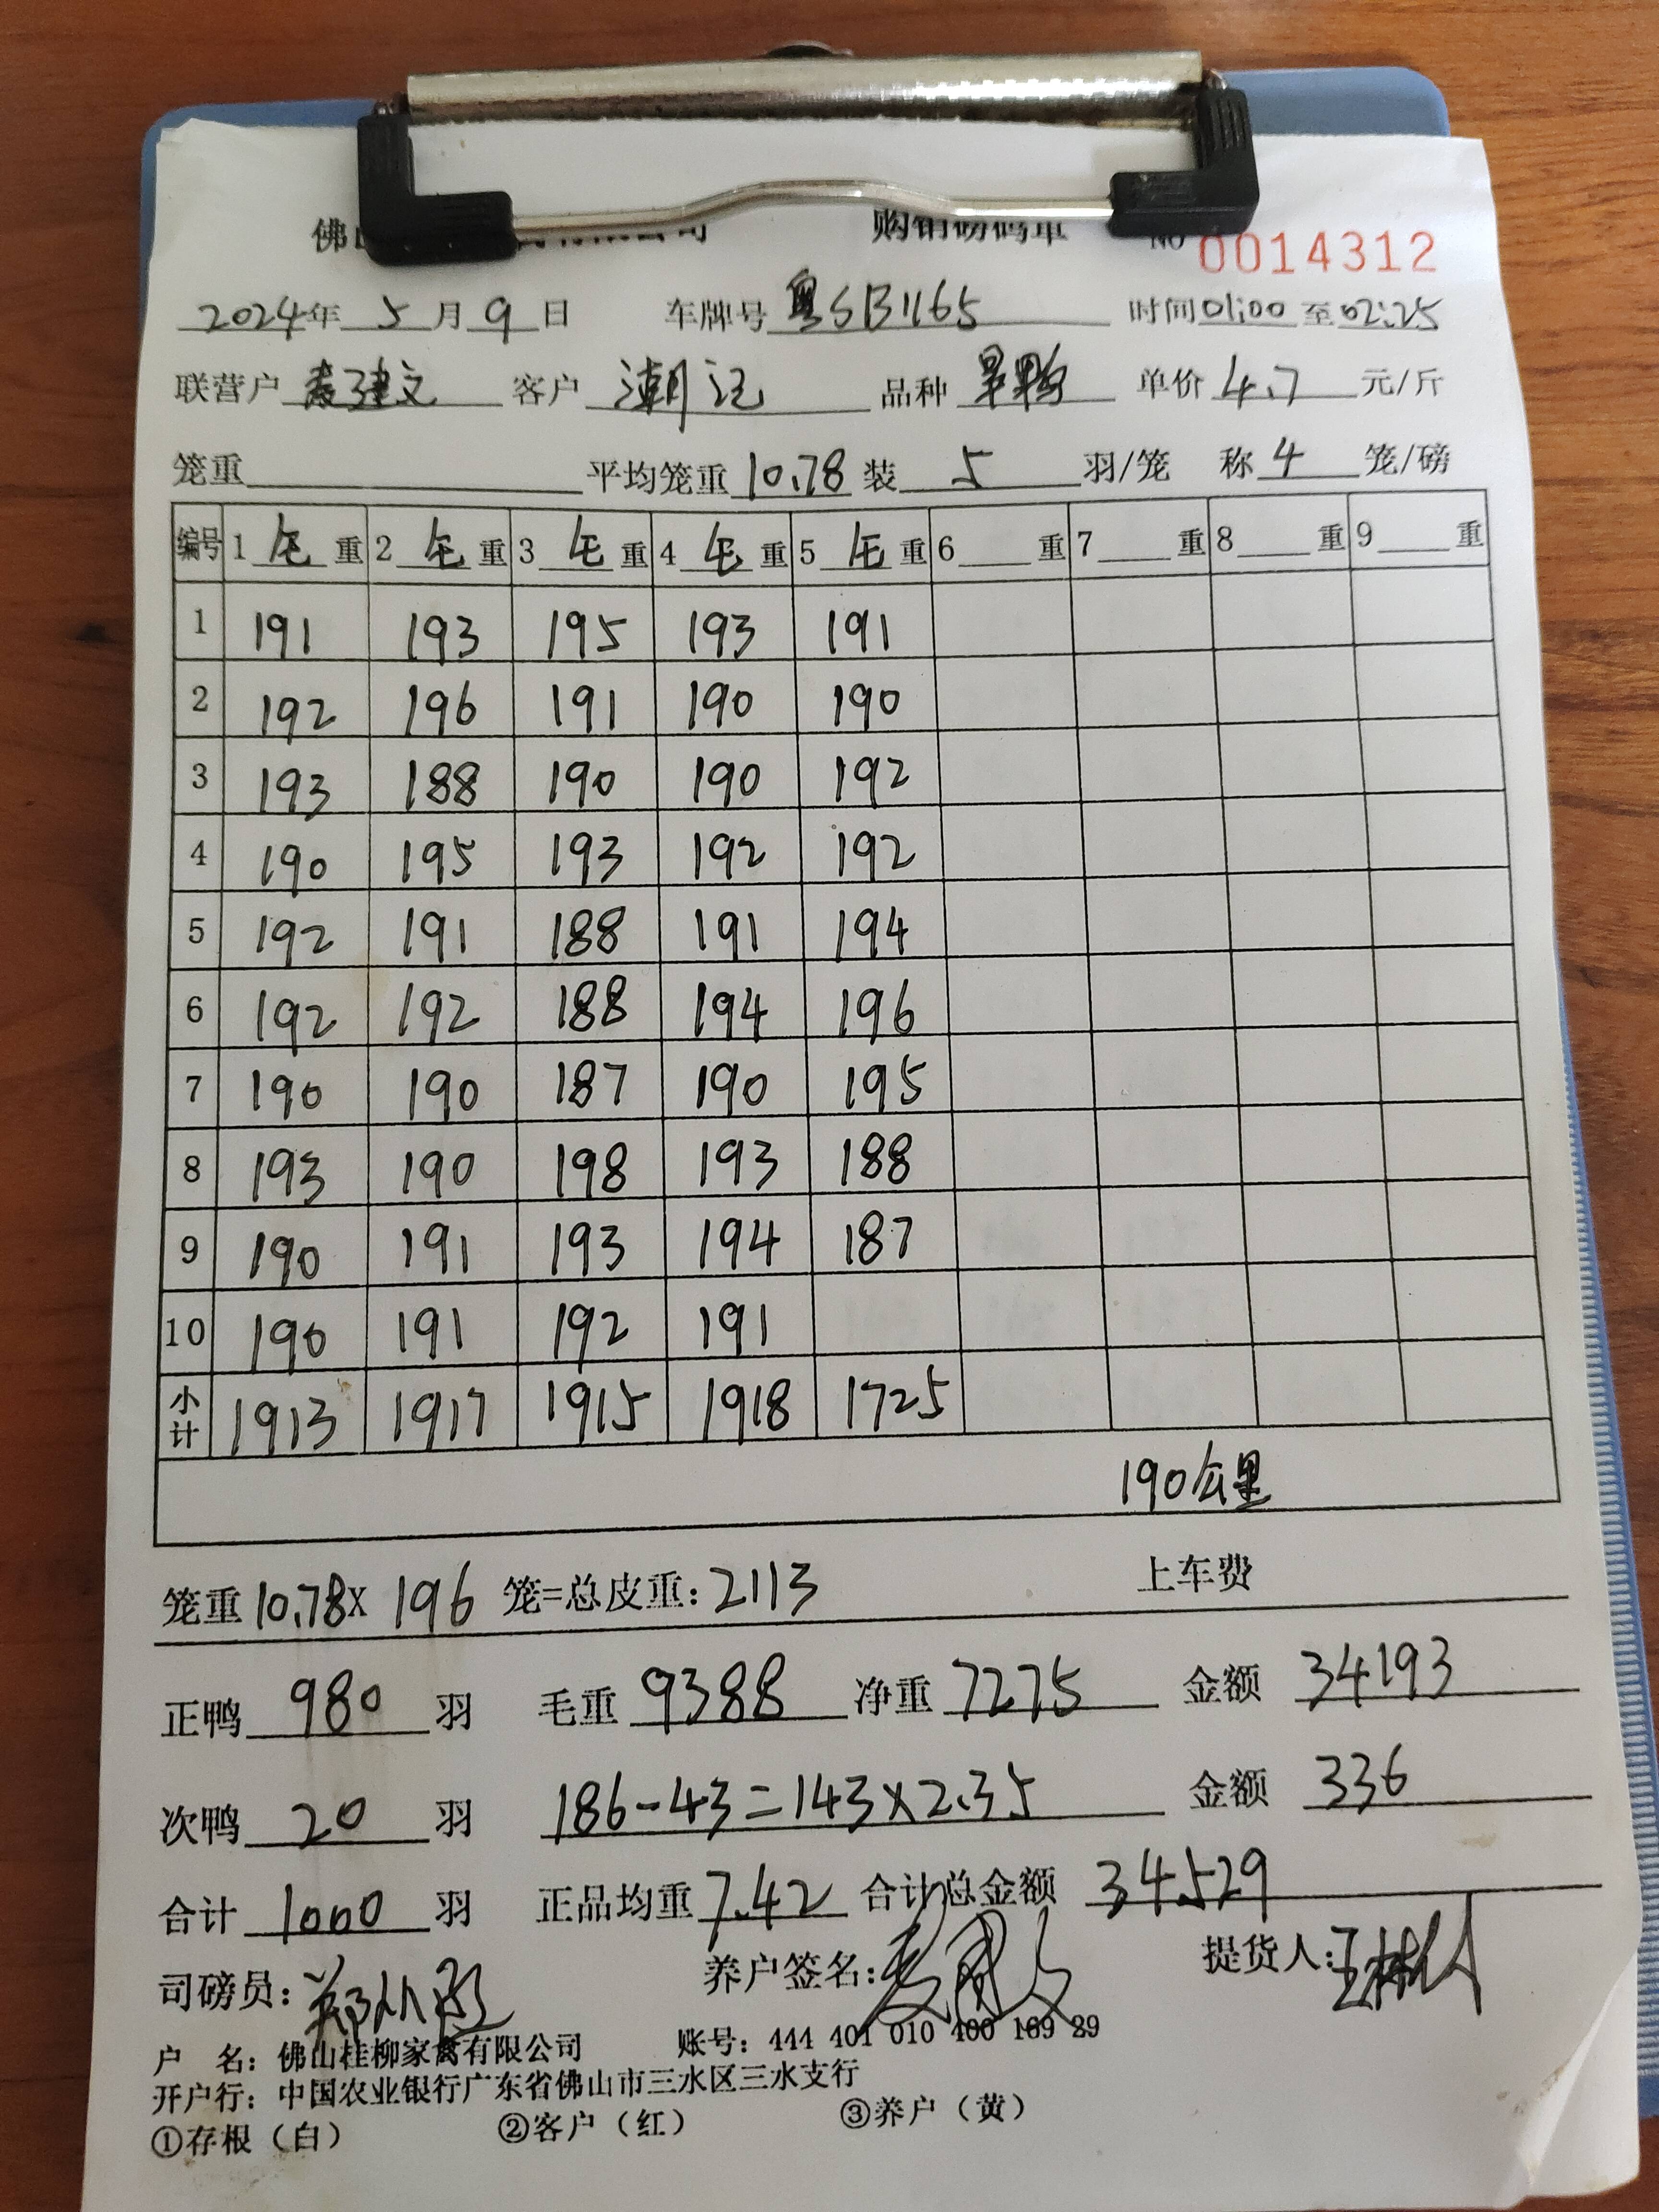 佛山 购销磅码单 NO 0014312
2024年 5 月 9 日 车牌号 粤SB1165 时间 01:00 至 02:25
联营户 麦建文 客户 潮记 品种 单价 4.7 元/斤
笼重 平均笼重 10.78 装 5 羽/笼 称 4 笼/磅
编号 1 毛 重 2 毛 重 3 毛 重 4 毛 重 5 毛 重 6 重 7 重 8 重 9 重
1 191 193 195 193 191
2 192 196 191 190 190
3 193 188 190 190 192
4 190 195 193 192 192
5 192 191 188 191 194
6 192 192 188 194 196
7 190 190 187 190 195
8 193 190 198 193 188
9 190 191 193 194 187
10 190 191 192 191
小计 1913 1917 1915 1918 1725
190公里
笼重 10.78X 196 笼=总皮重: 2113 上车费
正鸭 980 羽 毛重 9388 净重 7275 金额 34193
次鸭 20 羽 186-43=143×2.35 金额 336
合计 1000 羽 正品均重 7.42 合计总金额 34529
司磅员: 养户签名: 提货人:
户 名: 佛山桂柳家禽有限公司 账号: 444 401 010 400 169 29
开户行: 中国农业银行广东省佛山市三水区三水支行
①存根（白） ②客户（红） ③养户（黄）